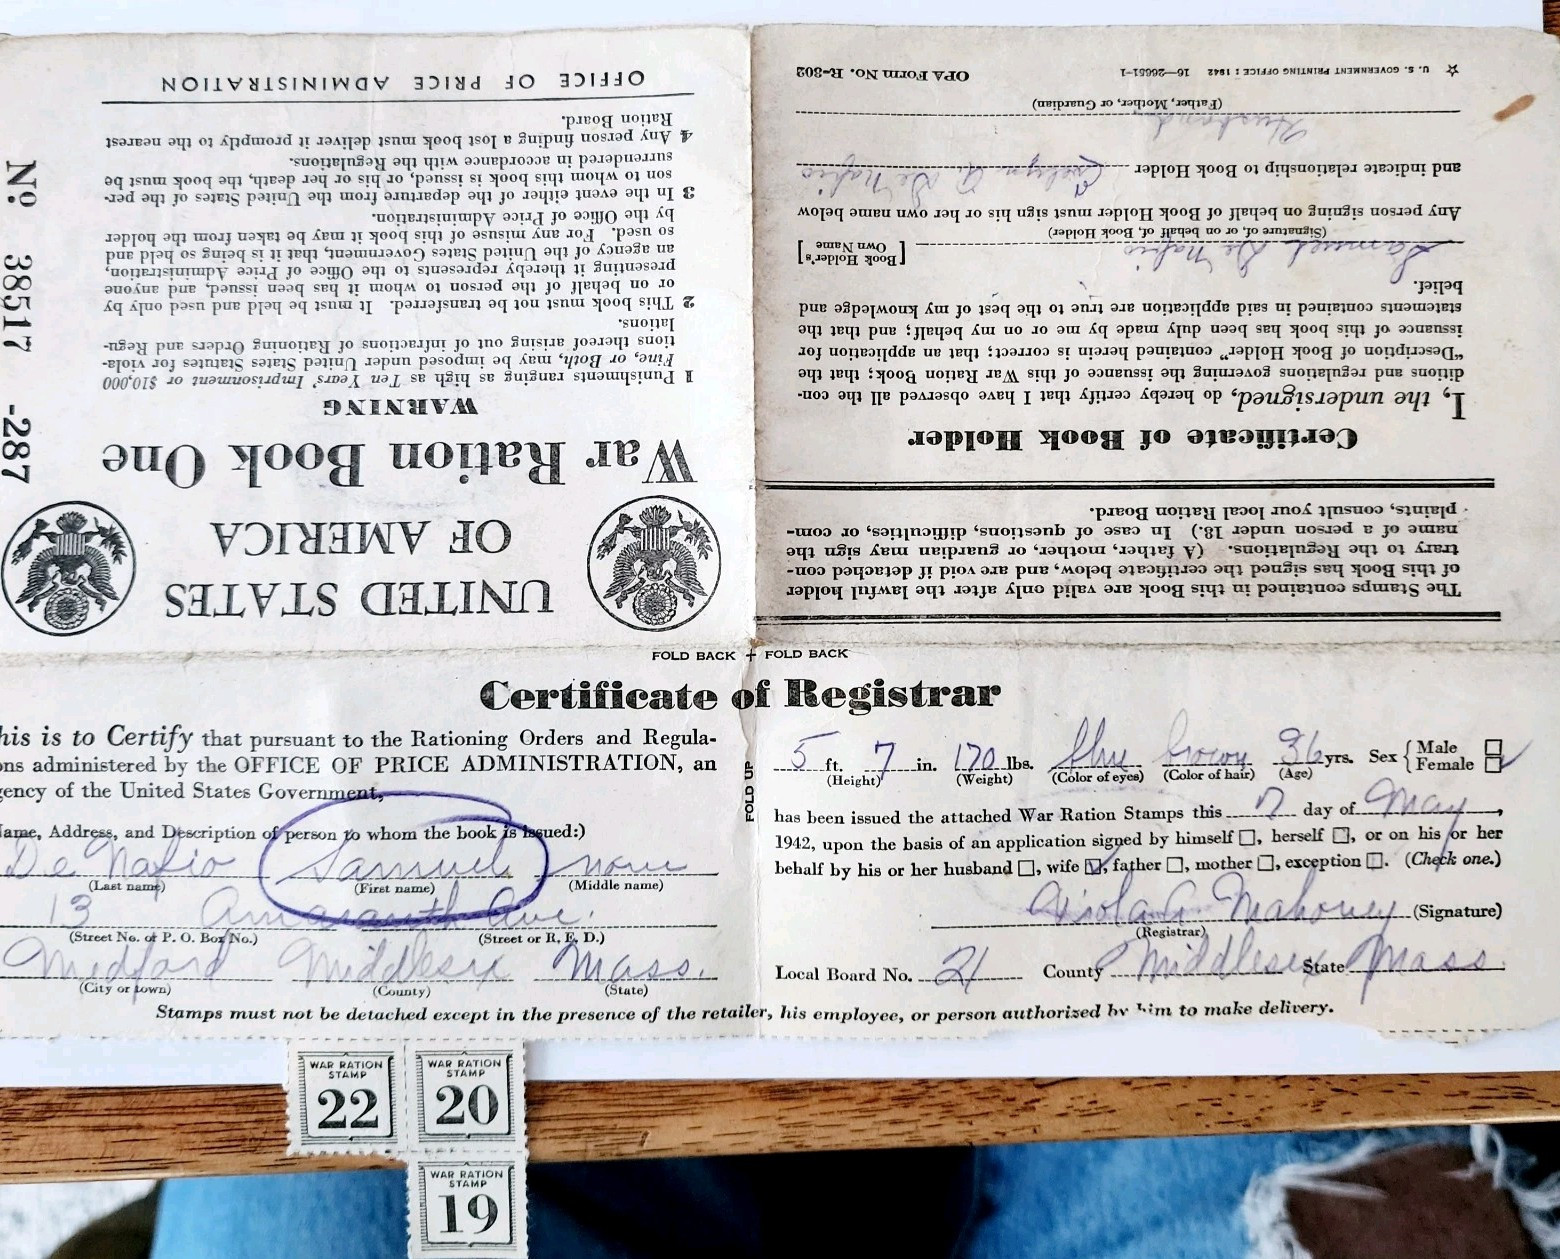 UNITED STATES
OF AMERICA
War Ration Book One
WARNING
1 Punishments ranging as high as Ten Years' Imprisonment or $10,000
Fine, or Both, may be imposed under United States Statutes for viola-
tions thereof arising out of infractions of Rationing Orders and Regu-
lations.
2 This book must not be transferred. It must be held and used only by
or on behalf of the person to whom it has been issued, and anyone
presenting it thereby represents to the Office of Price Administration,
an agency of the United States Government, that it is being so held and
so used. For any misuse of this book it may be taken from the holder
by the Office of Price Administration.
3 In the event either of the departure from the United States of the per-
son to whom this book is issued, or his or her death, the book must be
surrendered in accordance with the Regulations.
4 Any person finding a lost book must deliver it promptly to the nearest
Ration Board.
OFFICE OF PRICE ADMINISTRATION
Nº 38517 -287
The Stamps contained in this Book are valid only after the lawful holder
of this Book has signed the certificate below, and are void if detached con-
trary to the Regulations. (A father, mother, or guardian may sign the
name of a person under 18.) In case of questions, difficulties, or com-
plaints, consult your local Ration Board.
Certificate of Book Holder
I, the undersigned, do hereby certify that I have observed all the con-
ditions and regulations governing the issuance of this War Ration Book; that the
“Description of Book Holder” contained herein is correct; that an application for
issuance of this book has been duly made by me or on my behalf; and that the
statements contained in said application are true to the best of my knowledge and
belief.
Samuel De Nafio [Book Holder's Own Name]
(Signature of, or on behalf of, Book Holder)
Any person signing on behalf of Book Holder must sign his or her own name below
and indicate relationship to Book Holder Evelyn A. De Nafio
Husband
(Father, Mother, or Guardian)
☆ U. S. GOVERNMENT PRINTING OFFICE : 1942 16—26651-1 OPA Form No. R-302
FOLD BACK + FOLD BACK
Certificate of Registrar
his is to Certify that pursuant to the Rationing Orders and Regula-
ons administered by the OFFICE OF PRICE ADMINISTRATION, an
gency of the United States Government,
Name, Address, and Description of person to whom the book is issued:)
De Nafio Samuel none
(Last name) (First name) (Middle name)
13 Amaranth Ave.
(Street No. or P. O. Box No.) (Street or R. F. D.)
Medford Middlesex Mass.
(City or town) (County) (State)
FOLD UP
5 ft. 7 in. 170 lbs. blue brown 36 yrs. Sex { Male Female
(Height) (Weight) (Color of eyes) (Color of hair) (Age)
has been issued the attached War Ration Stamps this 7 day of May,
1942, upon the basis of an application signed by himself ☐, herself ☐, or on his or her
behalf by his or her husband ☐, wife ☑, father ☐, mother ☐, exception ☐. (Check one.)
Mahoney (Signature)
(Registrar)
Local Board No. 21 County Middlesex State Mass.
Stamps must not be detached except in the presence of the retailer, his employee, or person authorized by him to make delivery.
WAR RATION STAMP 22
WAR RATION STAMP 20
WAR RATION STAMP 19